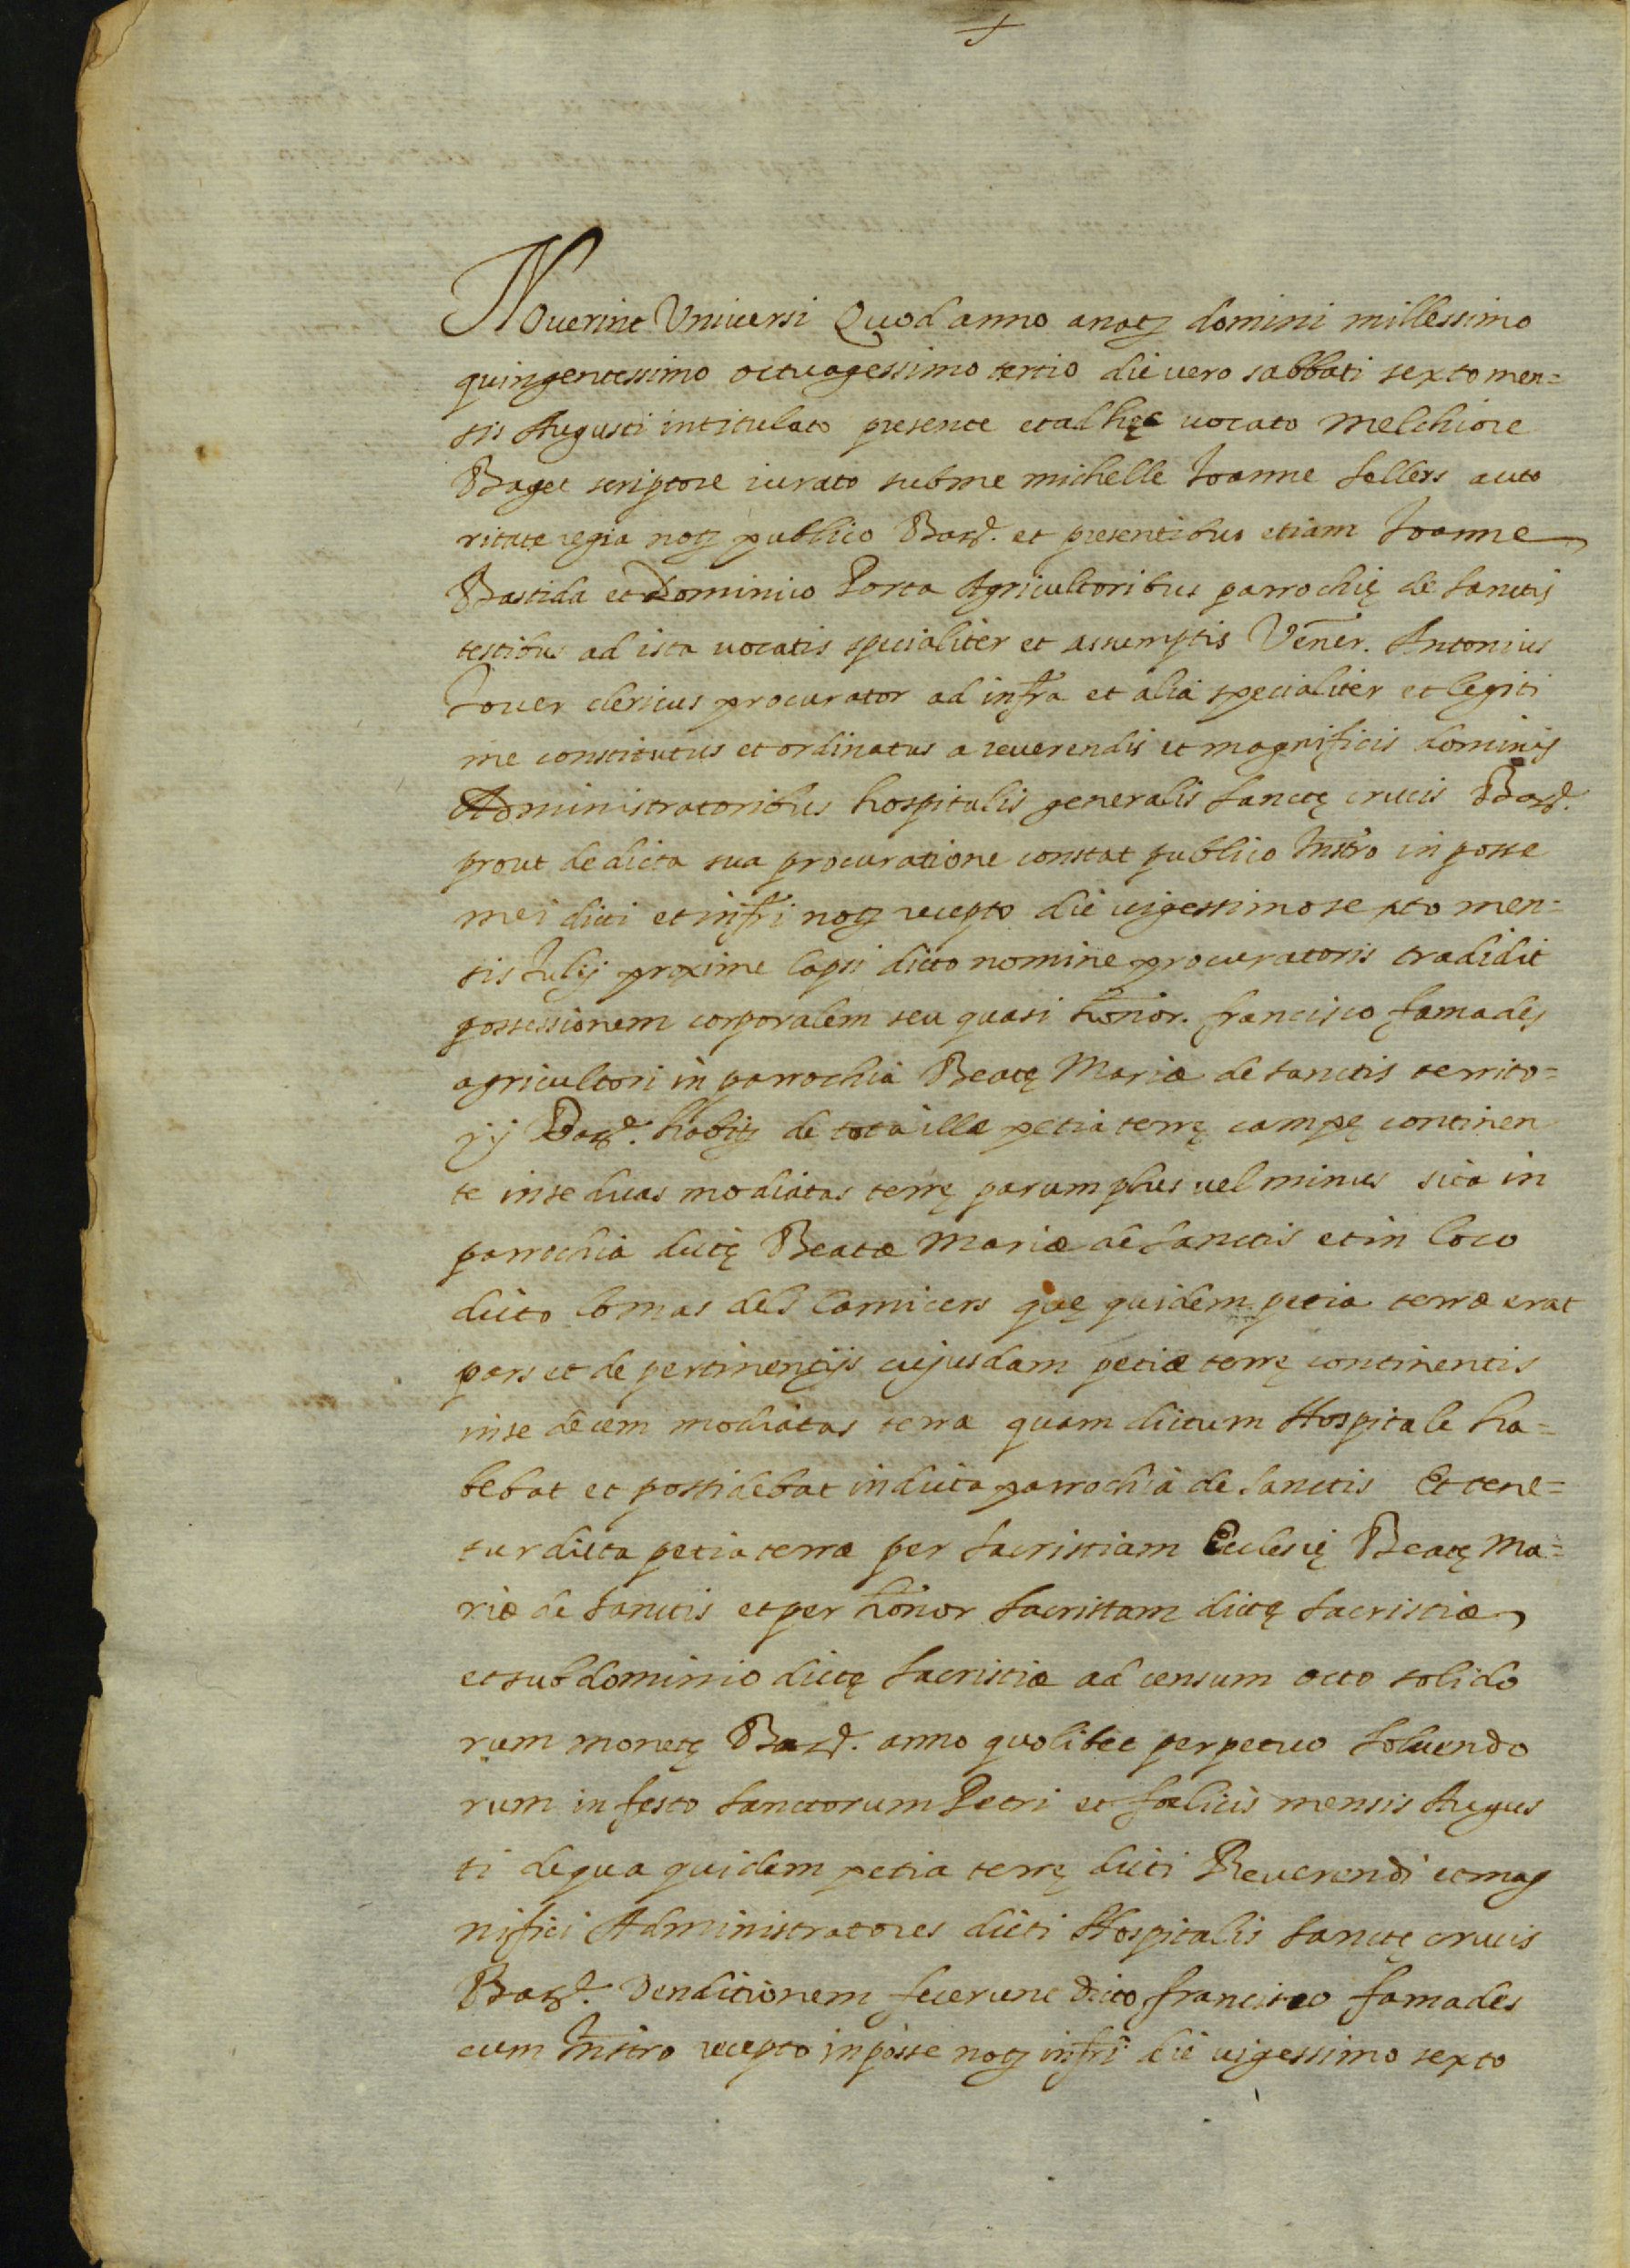 +
Nouerint Vniuersi Quod anno a natz domini millessimo
quingentessimo octuagessimo tertio die uero sabbati sexto men=
sis Augusti intitulato presente et ad hęc uocato Melchiore
Baget scriptore iurato sub me michelle Joanne Sellers auto
ritate regia notz publico Barz. et presentibus etiam Joanne
Bastida et Dominico Porta Agricultoribus parrochię de Sanctis
testibus ad ista uocatis specialiter et assumptis Vener. Antonius
Jouer clericus procurator ad infra et alia specialiter et legiti
me constitutus et ordinatus a reuerendis et magnificis dominis
Administratoribus hospitalis generalis Sanctę crucis Barz.
prout de dicta sua procuratione constat publico Instro in posse
mei dicti et infri notz recepto die uigessimo sexto men=
sis Julij proxime lapsi dicto nomine procuratoris tradidit
possessionem corporalem seu quasi honor. francisco famades
agricultori in parrochia Beatę Mariæ de Sanctis territo=
rij Barz. habitz de tota illa petia terrę campę continen
te in se duas modiatas terrę parum plus uel minus sita in
parrochia dictę Beatæ Mariæ de Sanctis et in loco
dicto Comas dels Carnicers quę quidem petia terræ erat
pars et de pertinentijs cujusdam petiæ terrę continentis
in se decem modiatas terra quam dictum Hospitale ha=
bebat et possidebat in dicta parrochia de Sanctis Et tene=
tur dicta petia terræ per Sacristiam Ecclesię Beatę Ma=
riæ de Sanctis et per honor Sacristam dictę Sacristiæ
et sub dominio dictę Sacristiæ ad censum octo solido
rum monetę Barz. anno quolibet perpetuo Soluendo
rum in festo Sanctorum Petri et fælicis mensis Augus
ti de qua quidem petia terrę dicti Reuerendi et mag
nifici Administratores dicti Hospitalis Sanctę crucis
Barz. Venditionem fecerunt dicto francisco famades
cum Instro recepto in posse notz infri die uigessimo sexto